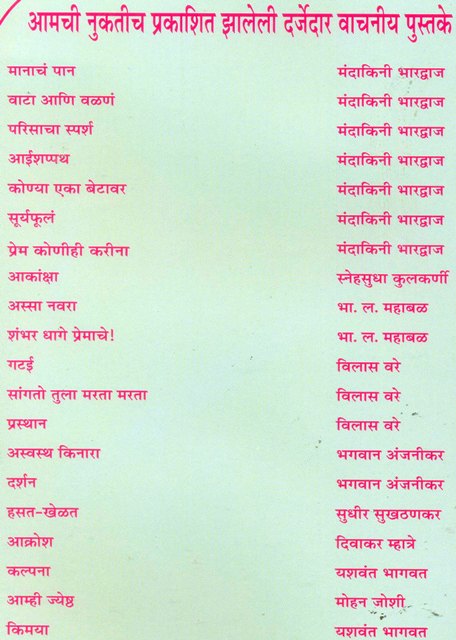 आमची नुकतीच प्रकाशित झालेली दर्जेदार वाचनीय पुस्तके
मानाचं पान मंदाकिनी भारद्वाज
वाटा आणि वळणं मंदाकिनी भारद्वाज
परिसाचा स्पर्श मंदाकिनी भारद्वाज
आईशप्पथ मंदाकिनी भारद्वाज
कोण्या एका बेटावर मंदाकिनी भारद्वाज
सूर्यफूलं मंदाकिनी भारद्वाज
प्रेम कोणीही करीना मंदाकिनी भारद्वाज
आकांक्षा स्नेहसुधा कुलकर्णी
अस्सा नवरा भा. ल. महाबळ
शंभर धागे प्रेमाचे! भा. ल. महाबळ
गटई विलास वरे
सांगतो तुला मरता मरता विलास वरे
प्रस्थान विलास वरे
अस्वस्थ किनारा भगवान अंजनीकर
दर्शन भगवान अंजनीकर
हसत-खेळत सुधीर सुखठणकर
आक्रोश दिवाकर म्हात्रे
कल्पना यशवंत भागवत
आम्ही ज्येष्ठ मोहन जोशी
किमया यशवंत भागवत